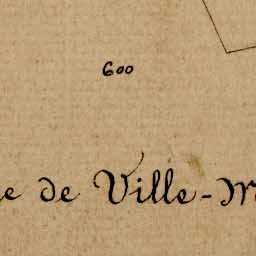 600
de Ville-